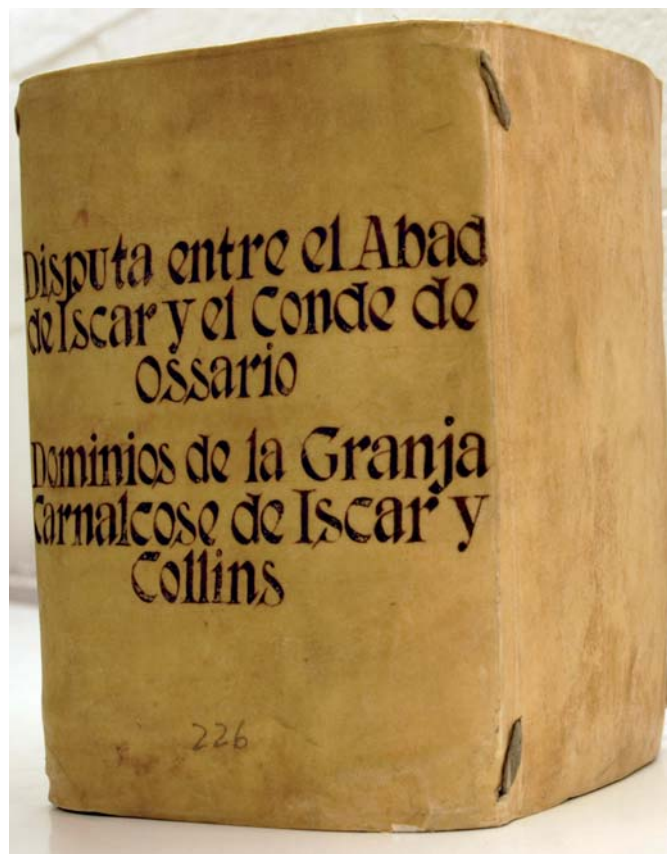 Disputa entre el Abad
de Iscar y el Conde de
Ossario
Dominios de la Granja
Carnalcose de Iscar y
Collins
226